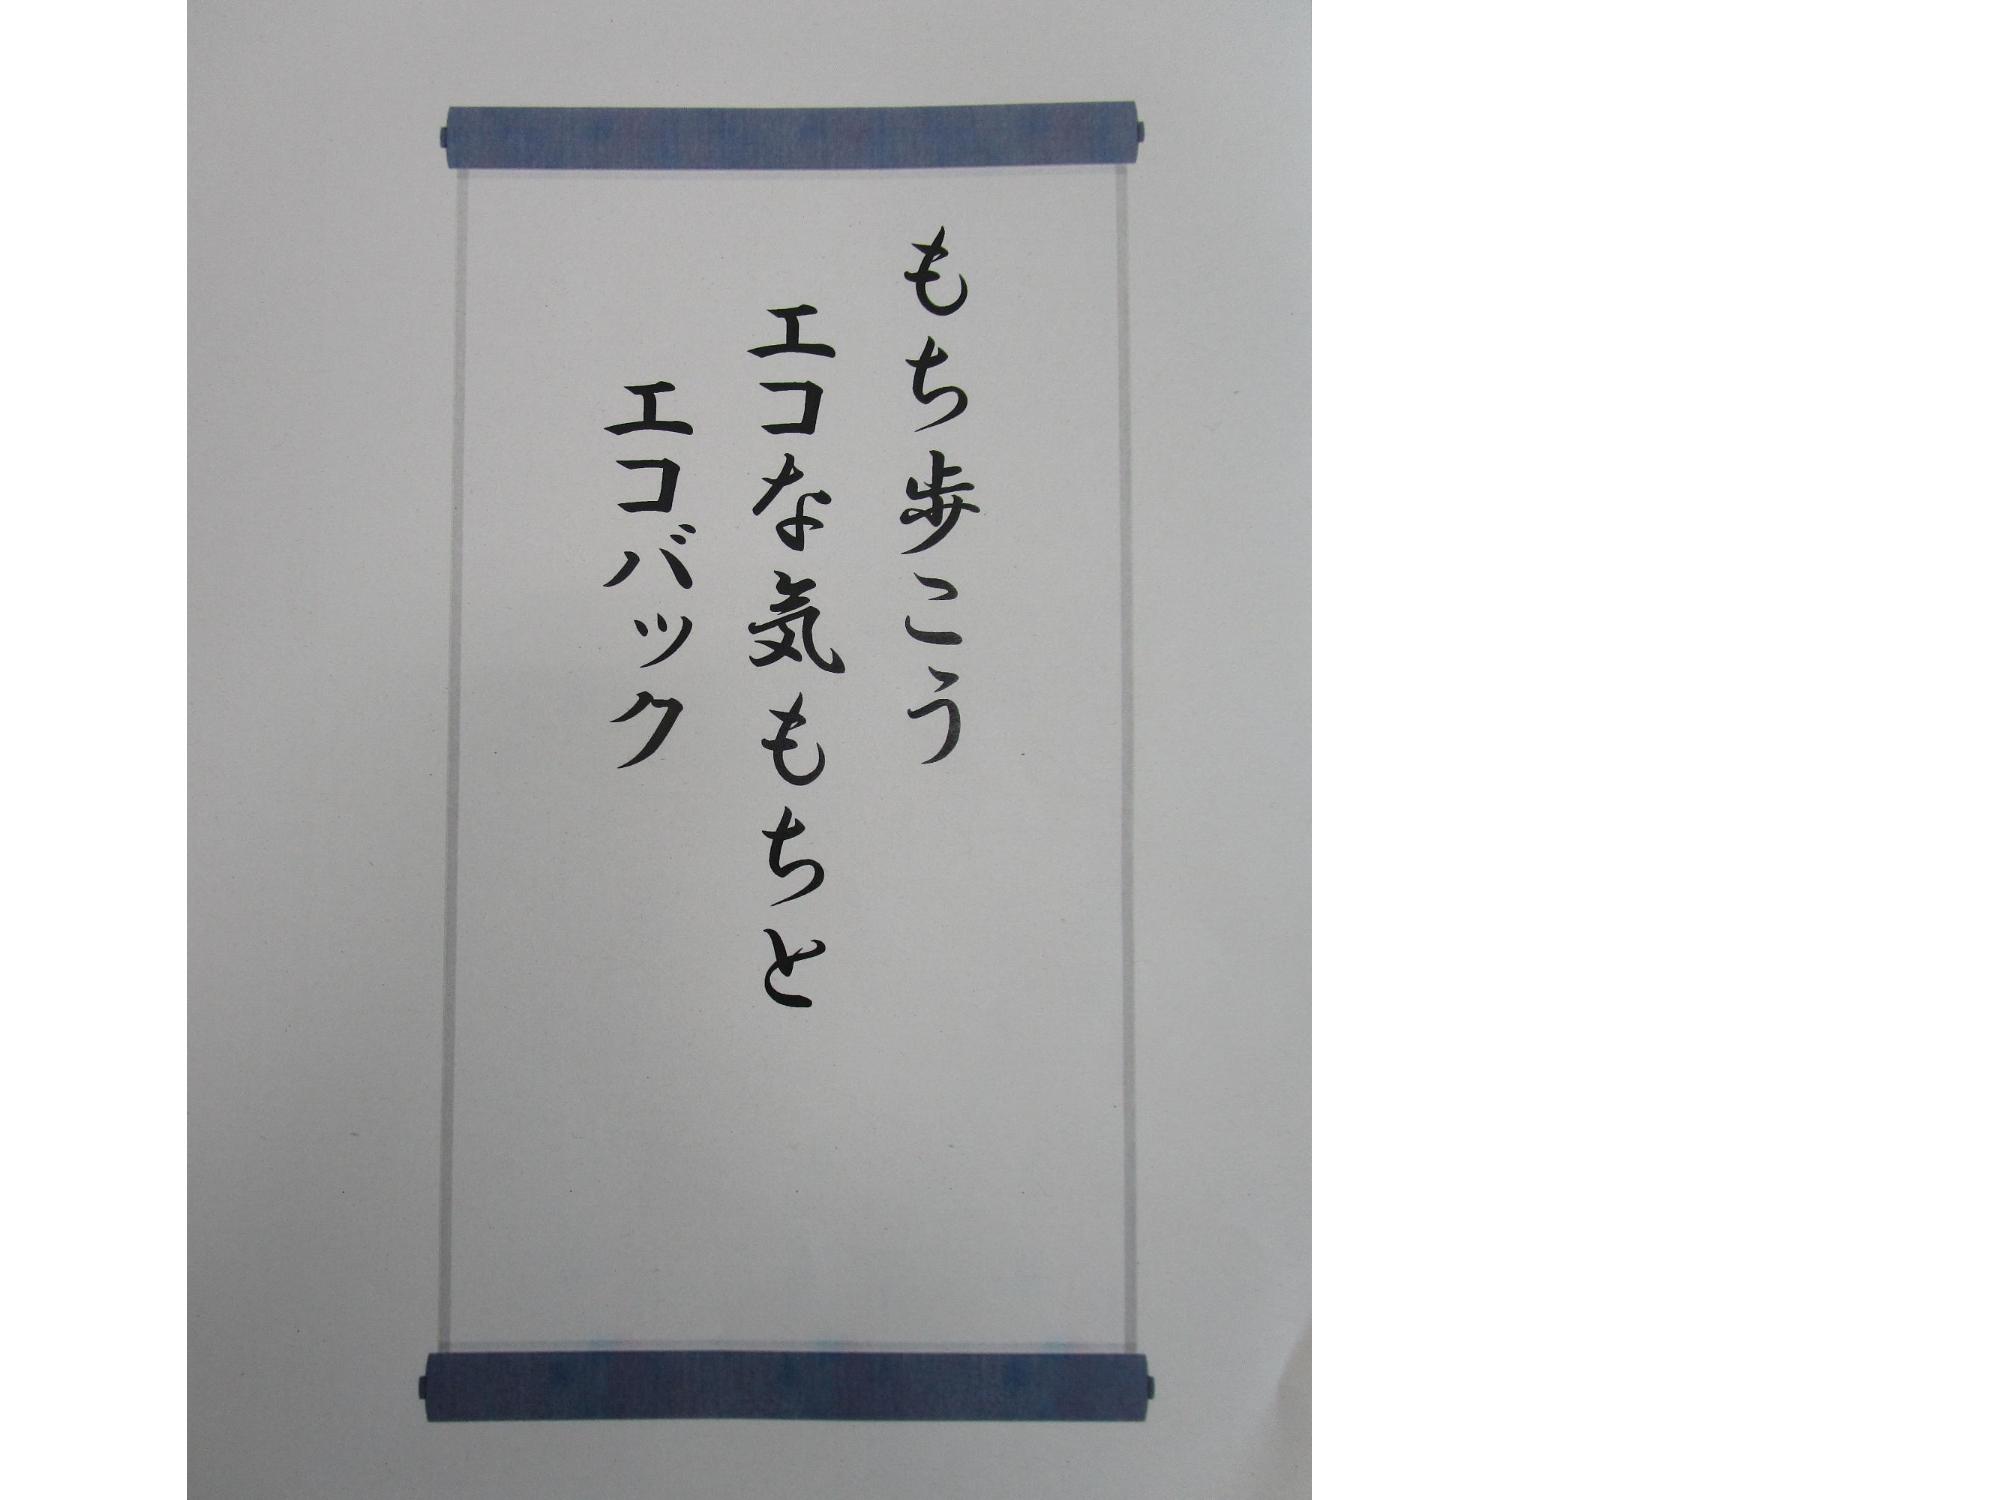 もち歩こう
エコな気もちと
エコバック